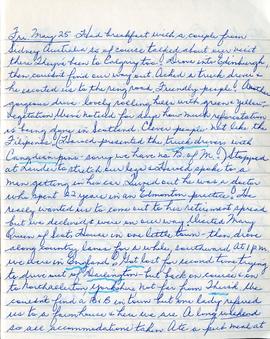 Fri. May 25 Had breakfast with a couple from
Sidney Australia so of course talked about our visit
there. They'd been to Calgary too. Drove into Edinburgh,
then couldn't find our way out. Asked a truck driver &
he escorted us to the ring road. Friendly people! Another
gorgeous drive - lovely rolling hills with green & yellow
vegetation. We've noticed for days how much reforestation
is being done in Scotland. Clever people. Not like the
Filipinos. (Harved presented the truck driver with
Canadian pins - sorry we have no B. of M.) Stopped
at Lauder to stretch our legs & Harved spoke to a
man getting in his car. Turned out he was a doctor
who spent 22 years in an Edmonton practice! He
really wanted us to come out to his house not spread
but we declined & were on our way. Visited Mary
Queen of Scots House in one little town - then drove
along country lanes for a while, southward. At 1 pm
we were in England! Got lost for second time trying
to drive out of Darlington - but back on course & on
to Northallerton Yorkshire not far from Thirsk. We
couldn't find a B&B in town but one lady referred
us to a farmhouse & here we are. A long weekend
so all accommodations taken. Ate a pub meal at